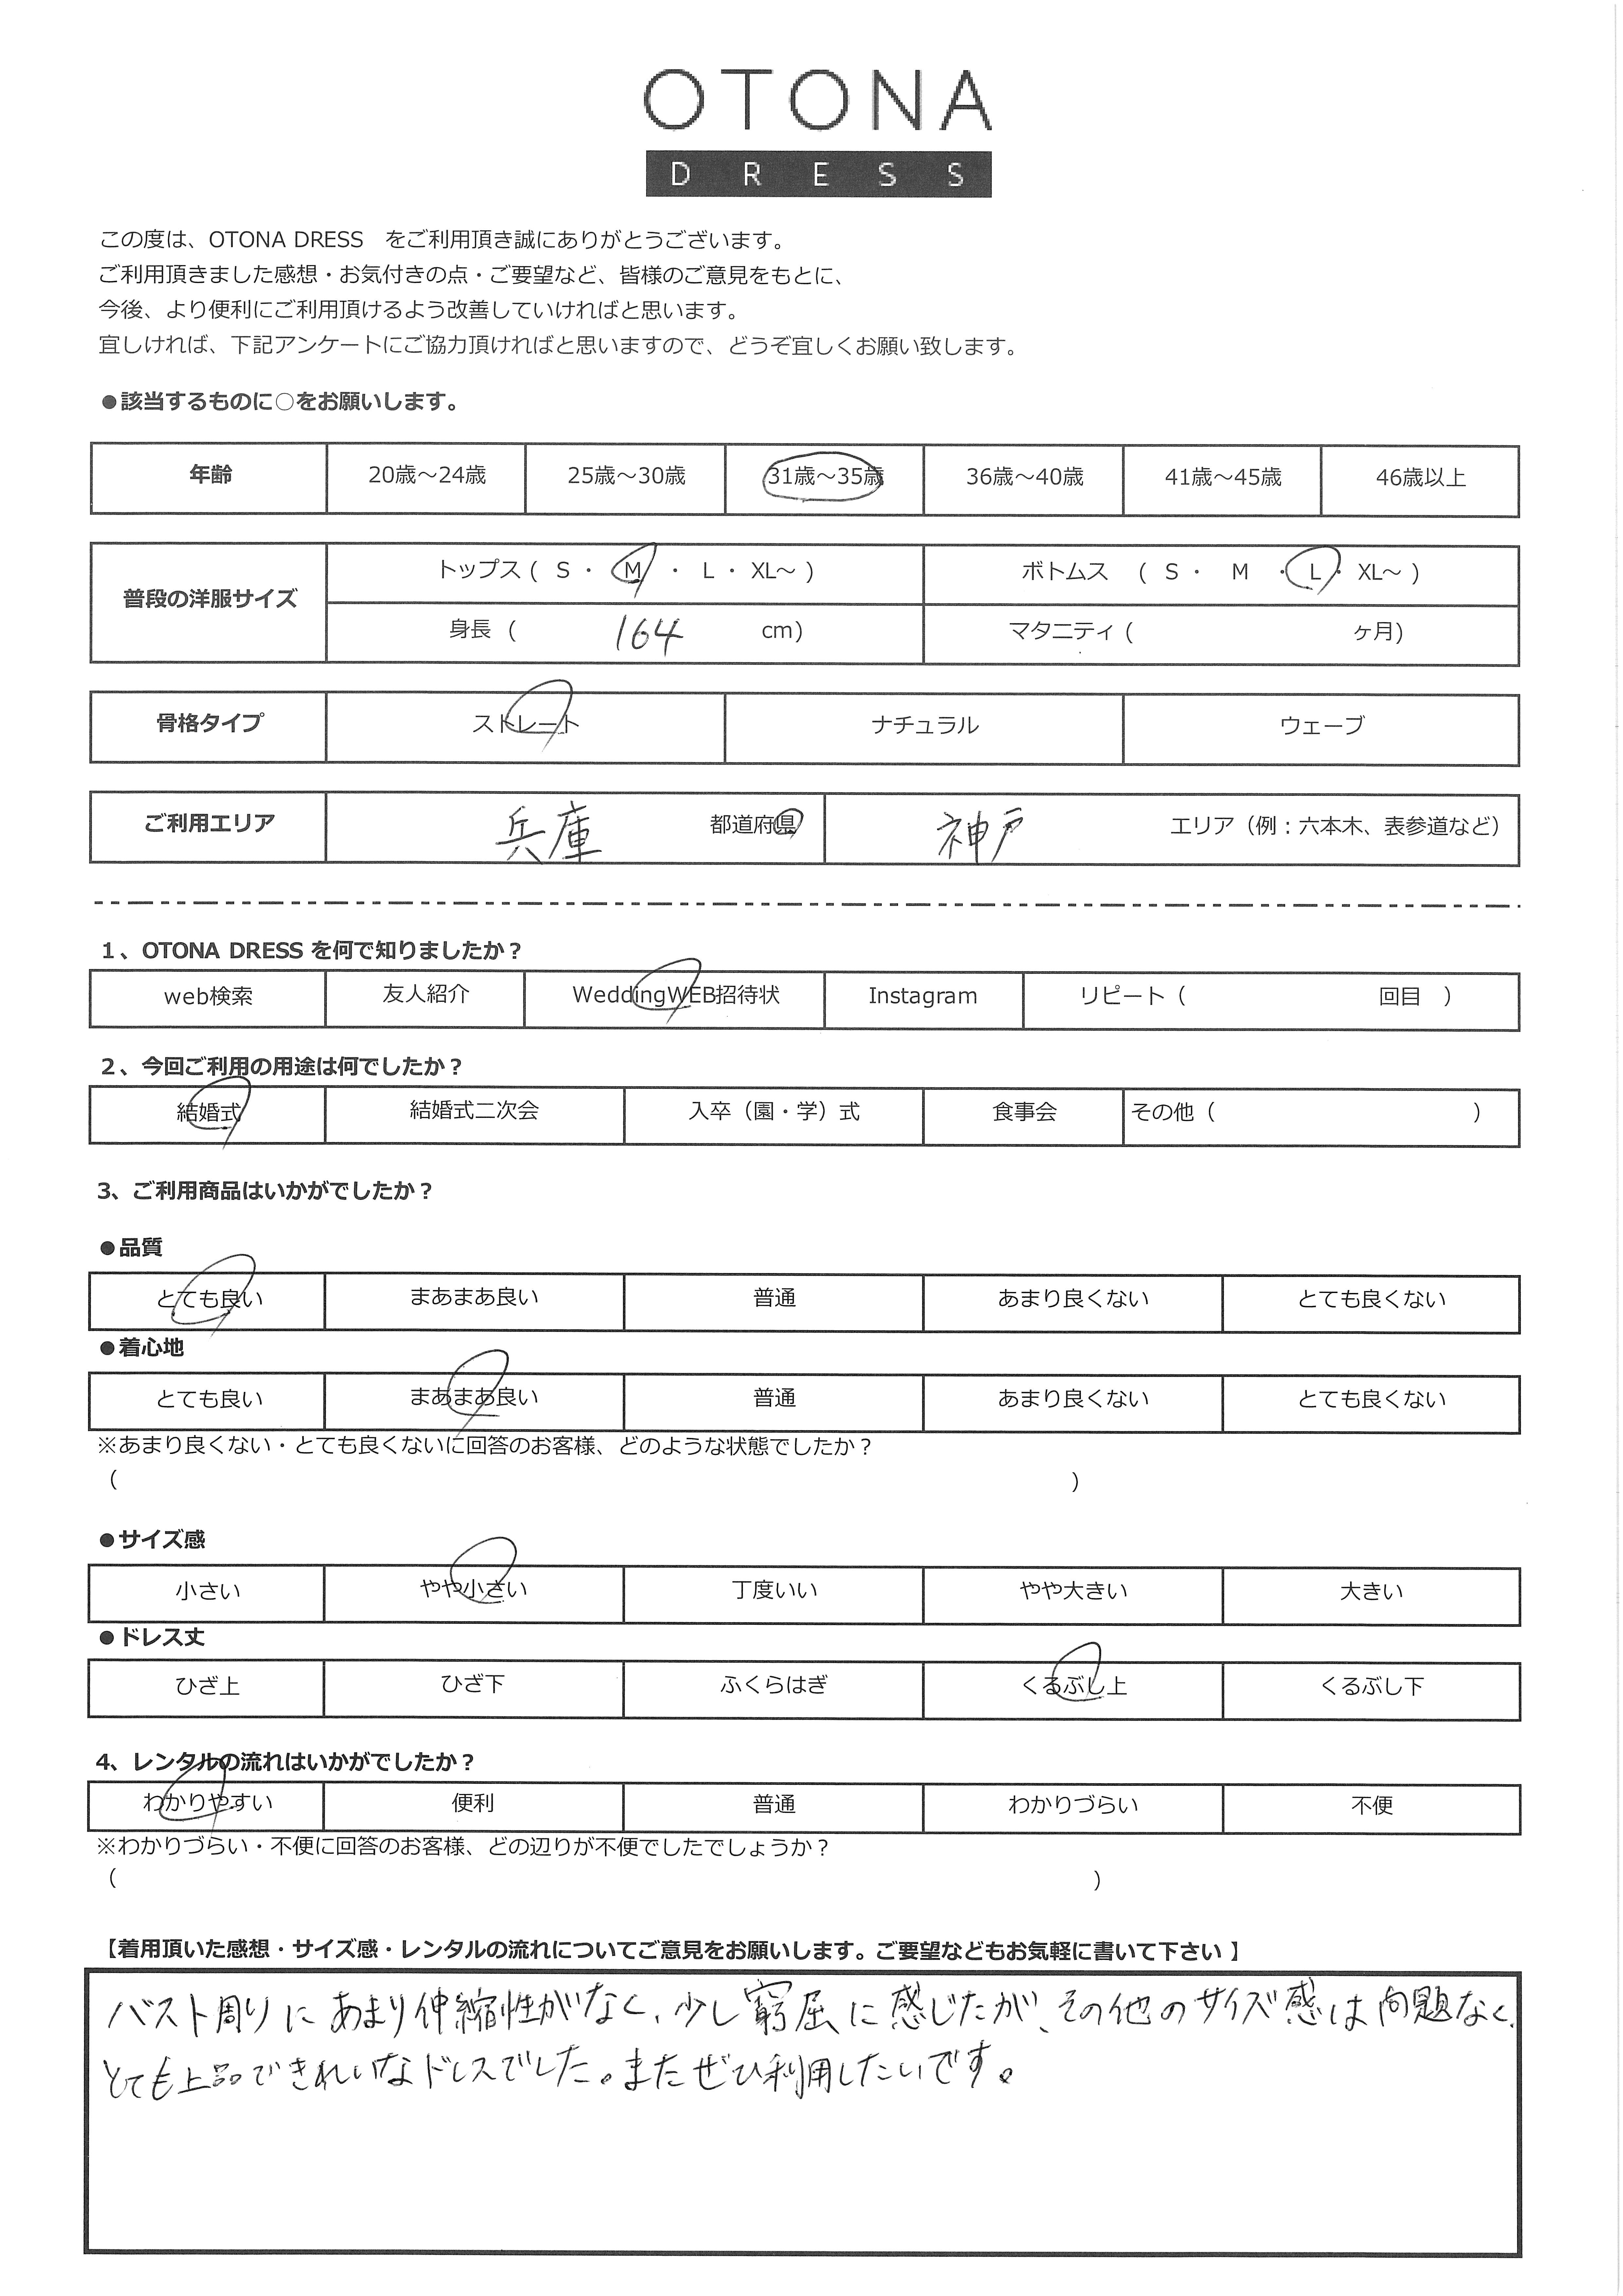 OTONA
DRESS
この度は、OTONA DRESS　をご利用頂き誠にありがとうございます。
ご利用頂きました感想・お気付きの点・ご要望など、皆様のご意見をもとに、
今後、より便利にご利用頂けるよう改善していければと思います。
宜しければ、下記アンケートにご協力頂ければと思いますので、どうぞ宜しくお願い致します。
●該当するものに○をお願いします。
年齢 20歳～24歳 25歳～30歳 31歳～35歳 36歳～40歳 41歳～45歳 46歳以上
普段の洋服サイズ トップス ( S ・ M ・ L ・ XL～ ) ボトムス ( S ・ M ・ L ・ XL～ )
身長 ( 164 cm) マタニティ ( ヶ月)
骨格タイプ ストレート ナチュラル ウェーブ
ご利用エリア 兵庫 都道府県 神戸 エリア（例：六本木、表参道など）
1、OTONA DRESS を何で知りましたか？
web検索 友人紹介 WeddingWEB招待状 Instagram リピート（ 回目 ）
2、今回ご利用の用途は何でしたか？
結婚式 結婚式二次会 入卒（園・学）式 食事会 その他（ ）
3、ご利用商品はいかがでしたか？
●品質
とても良い まあまあ良い 普通 あまり良くない とても良くない
●着心地
とても良い まあまあ良い 普通 あまり良くない とても良くない
※あまり良くない・とても良くないに回答のお客様、どのような状態でしたか？
（ ）
●サイズ感
小さい やや小さい 丁度いい やや大きい 大きい
●ドレス丈
ひざ上 ひざ下 ふくらはぎ くるぶし上 くるぶし下
4、レンタルの流れはいかがでしたか？
わかりやすい 便利 普通 わかりづらい 不便
※わかりづらい・不便に回答のお客様、どの辺りが不便でしたでしょうか？
（ ）
【着用頂いた感想・サイズ感・レンタルの流れについてご意見をお願いします。ご要望などもお気軽に書いて下さい 】
バスト周りにあまり伸縮性がなく、少し窮屈に感じたが、その他のサイズ感は問題なく、
とても上品できれいなドレスでした。またぜひ利用したいです。